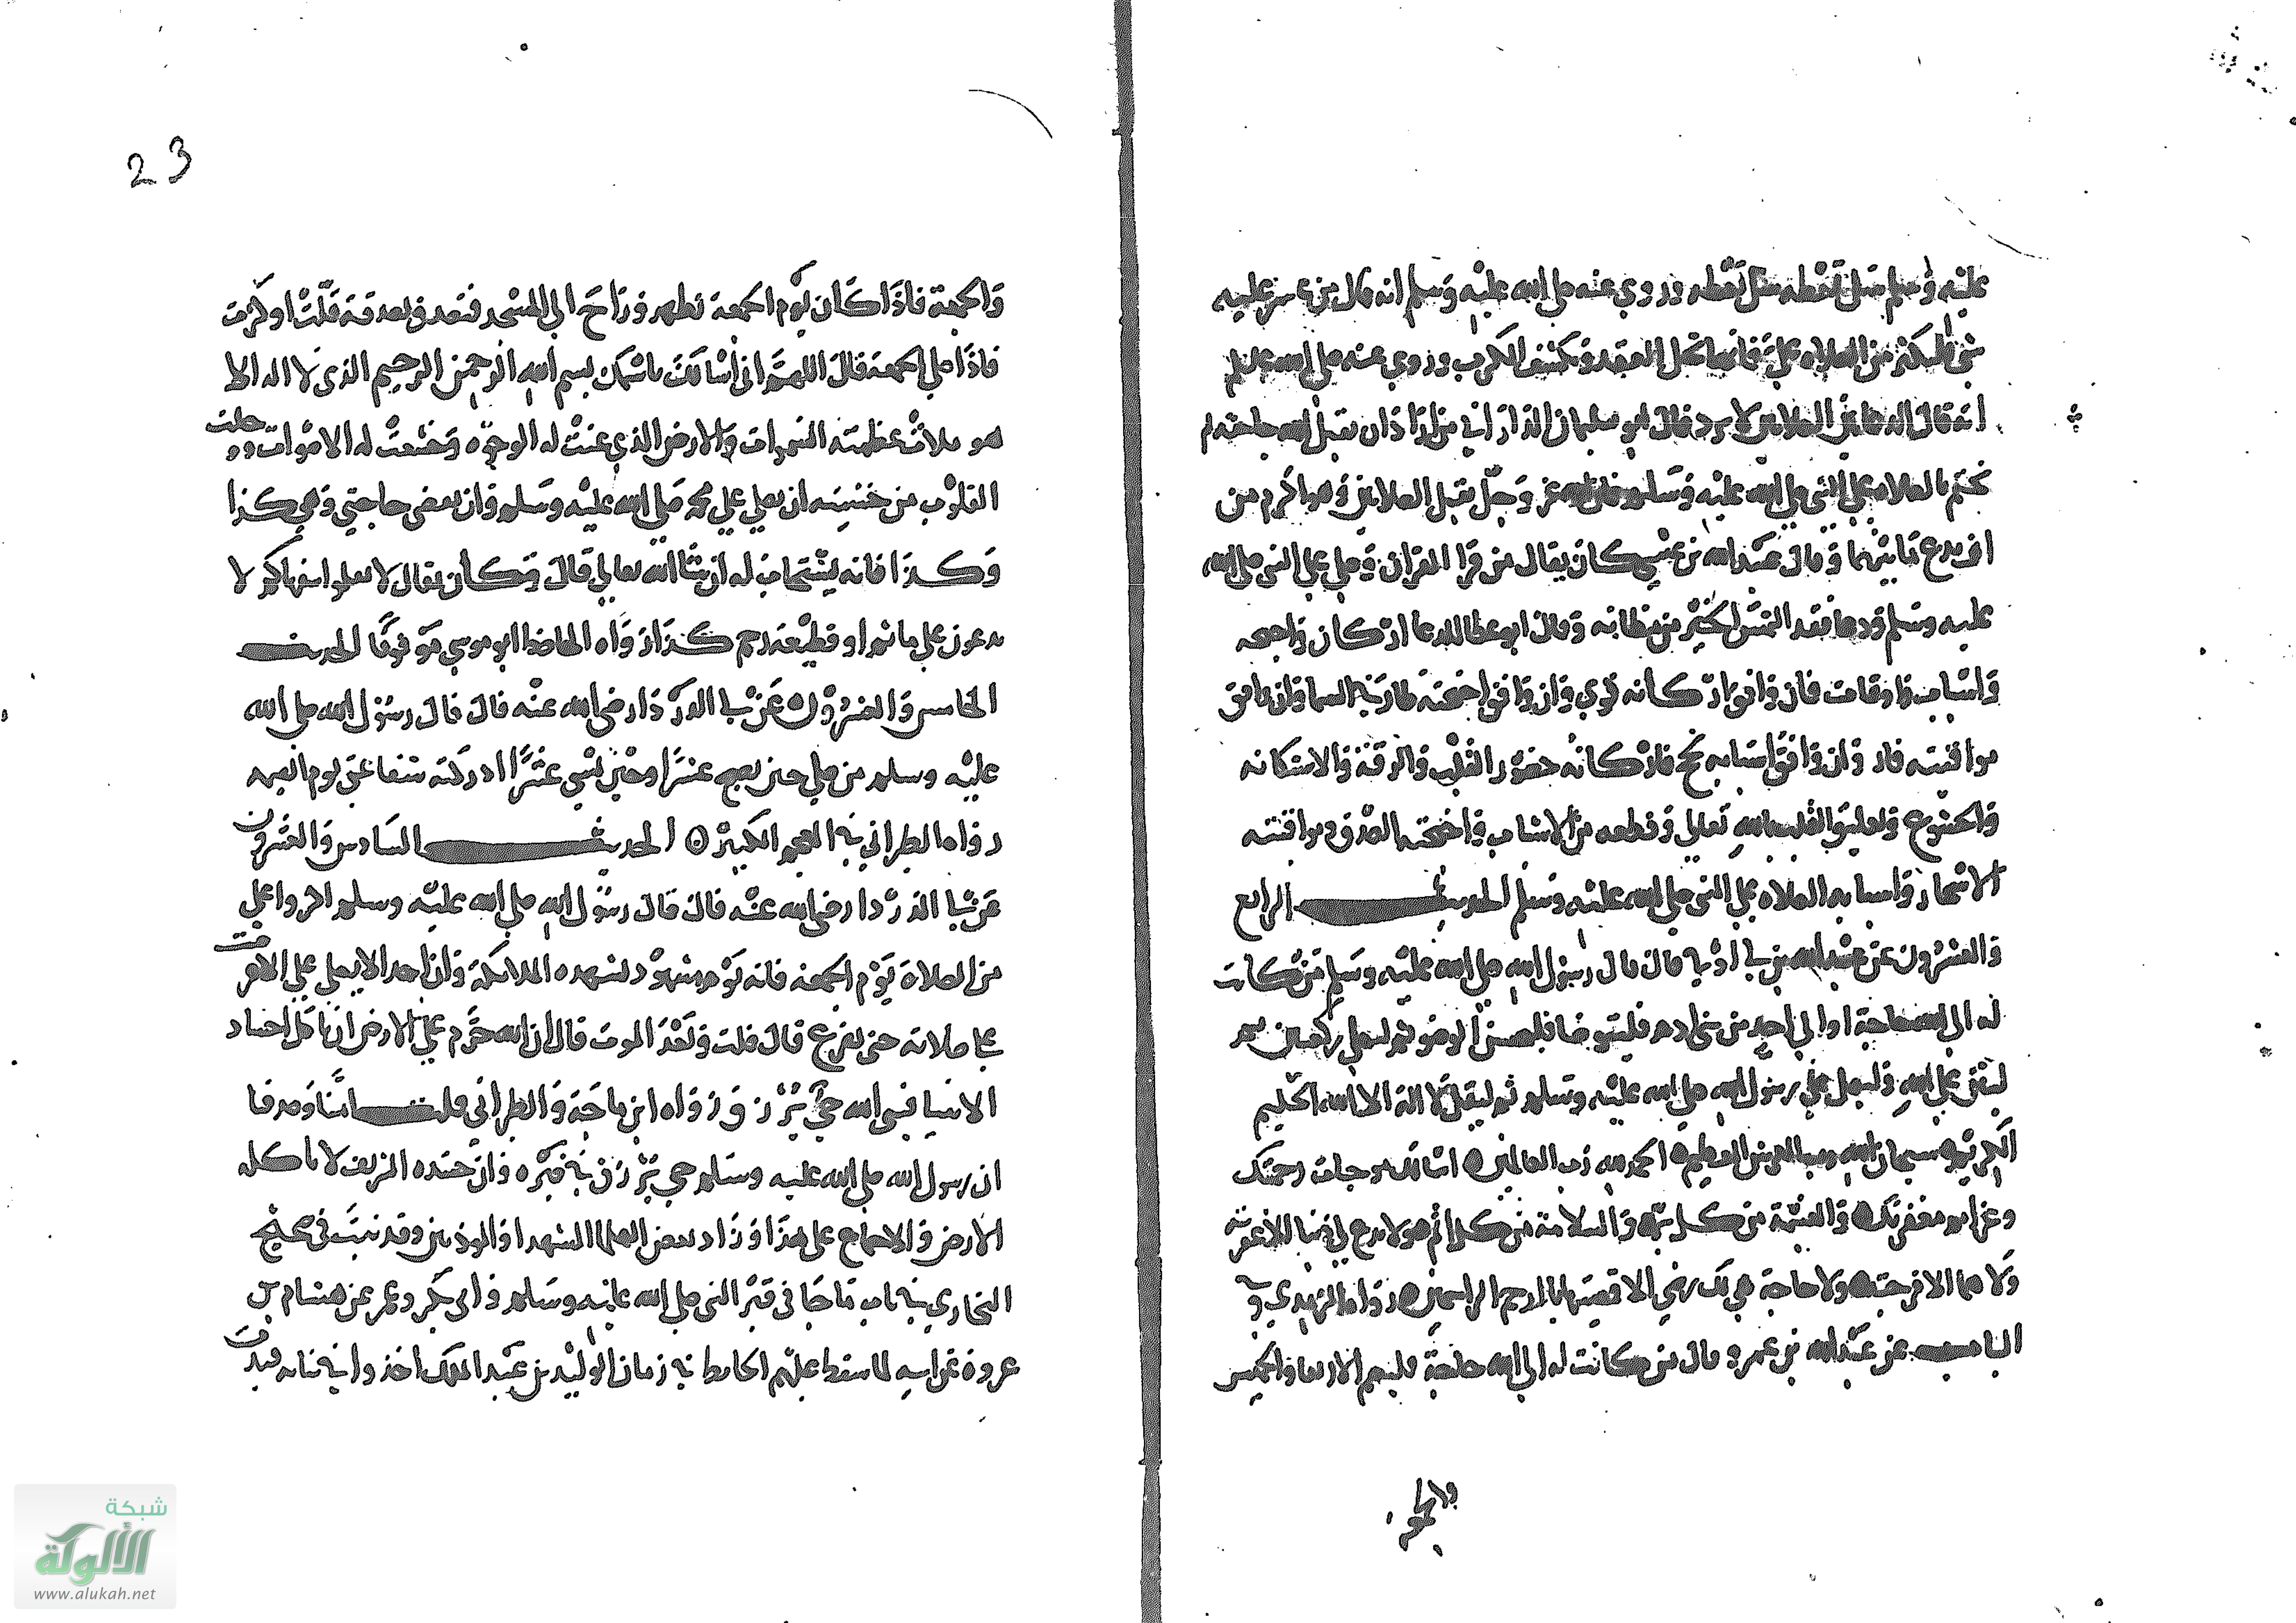 عليه وسلم مثل تعظيمه وروي عنه صلى الله عليه وسلم انه قال من عسر عليه
شي فليكثر من الصلاة علي فانها تحل العقد وتكشف الكرب وروي عنه صلى الله عليه وسلم
انه قال الدعا بين الصلاتين لا يرد فقال ابو سليمان الداراني من اراد ان يقبل الله حاجته
فختم بالصلاه على النبي صلى الله عليه وسلم فان الله عز وجل يقبل الصلاتين وهو اكرم من
ان يدع ما بينهما وقال عبد الله بن عيسي كان يقال من قرا القران وصلي علي النبي صلى الله
عليه وسلم ودعا فقد التمس الخير من مظانه وقال ابن عطا للدعا اركان واجنحه
واسباب واوقات فان وافق اركانه قوي وان وافق اجنحته طار في السما وان وافق
مواقيته فاز وان وافق اسبابه نجح فاركانه حضور القلب والرقة والاستكانه
والخشوع وتعليق القلب بالله تعالى وقطعه من الاسباب واجنحته الصدق ومواقيته
الاسحار واسبابه الصلاه على النبي صلى الله عليه وسلم الحديث الرابع
والعشرون عن عبد الله بن ابي اوفي قال قال رسول الله صلى الله عليه وسلم من كانت
له الى الله حاجة او الي احد من بني ادم فليتوضا فليحسن الوضو ثم ليصل ركعتين ثم
ليثن على الله وليصل على رسول الله صلى الله عليه وسلم ثم ليقل لا اله الا الله الحليم
الكريم سبحان الله رب العرش العظيم الحمد لله رب العالمين اسالك موجبات رحمتك
وعزايم مغفرتك والغنيمة من كل بر والسلامة من كل اثم لا تدع لي ذنبا الا غفرته
ولا هما الا فرجته ولا حاجة هي لك رضي الا قضيتها يا ارحم الراحمين رواه الترمذي وفي
الباب عن عبد الله بن عمرو قال من كانت له الى الله حاجة فليصم الاربعا والخميس
والجمعة
23
والجمعة فاذا كان يوم الجمعة تطهر وراح الي المسجد فتصدق بصدقة قلت او كثرت
فاذا صلي الجمعة قال اللهم اني اسالك باسمك بسم الله الرحمن الرحيم الذي لا اله الا
هو ملات عظمته السموات والارض الذي عنت له الوجوه وخشعت له الاصوات ووجلت
القلوب من خشيته ان تصلي علي محمد صلي الله عليه وسلم وان تعطي حاجتي وهي كذا
وكذا فانه يستجاب له ان شا الله تعالي قال وكان يقال لا تعلموا سفهاكم لا
يدعون على ماثم او قطيعة رحم كذا رواه الحافظ ابو موسي موقوفا الحديث
الخامس والعشرون عن ابي الدردا رضى الله عنه قال قال رسول الله صلى الله
عليه وسلم من صلي حين يصبح عشرا وحين يمسي عشرا ادركته شفاعتي يوم القيمه
رواه الطبراني في المعجم الكبير الحديث السادس والعشرون
عن ابي الدردا رضى الله عنه قال قال رسول الله صلى الله عليه وسلم اكثروا علي
من الصلاة يوم الجمعه فانه يوم مشهود تشهده الملائكة وان احدا لا يصلي علي الا عرضت
علي صلاته حتى يفرغ قال قلت وبعد الموت قال ان الله حرم علي الارض ان تاكل اجساد
الانبيا فنبي الله حي يرزق ورواه ابن ماجة والطبراني قلت امنا وصدقنا
ان رسول الله صلى الله عليه وسلم حي يرزق في قبره وان جسده الشريف لا تاكله
الارض والاجماع على هذا وزاد بعض العلما الشهدا والموذنين وقد ثبت في صحيح
البخاري في باب ما جا في قبر النبي صلى الله عليه وسلم وابي بكر وعمر عن هشام بن
عروة عن ابيه لما سقط عليهم الحايط في زمان الوليد بن عبد الملك اخذوا في بنايه فبدت
شبكة
الألوكة
www.alukah.net